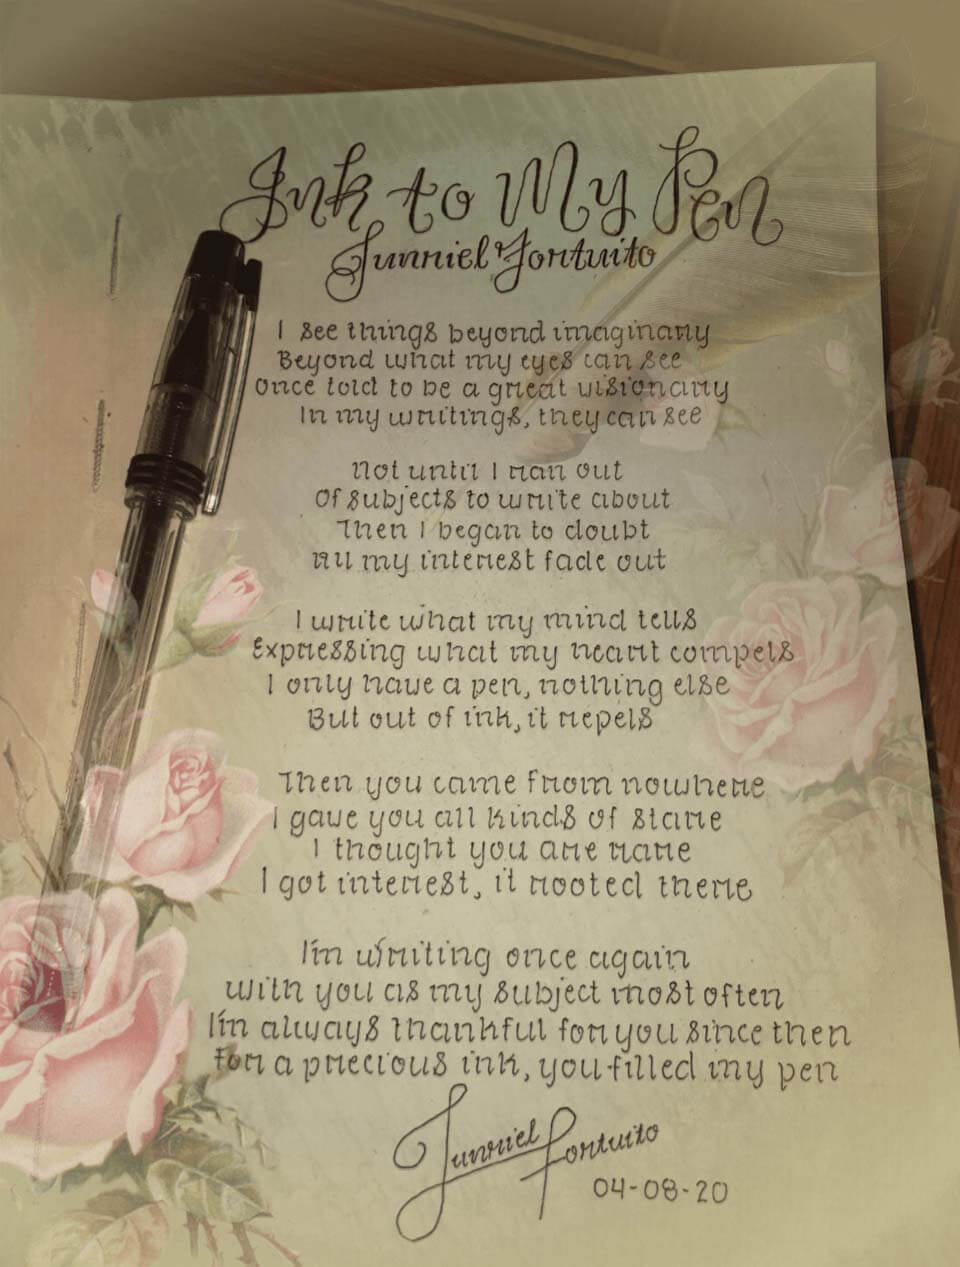 Ink to My Pen
Junniel Fortuito
I see things beyond imaginary
Beyond what my eyes can see
Once told to be a great visionary
In my writings, they can see
Not until I ran out
Of subjects to write about
Then I began to doubt
All my interest fade out
I write what my mind tells
Expressing what my heart compels
I only have a pen, nothing else
But out of ink, it repels
Then you came from nowhere
I gave you all kinds of stare
I thought you are rare
I got interest, it rooted there
I'm writing once again
with you as my subject most often
I'm always thankful for you since then
For a precious ink, you filled my pen
Junniel Fortuito
04-08-20